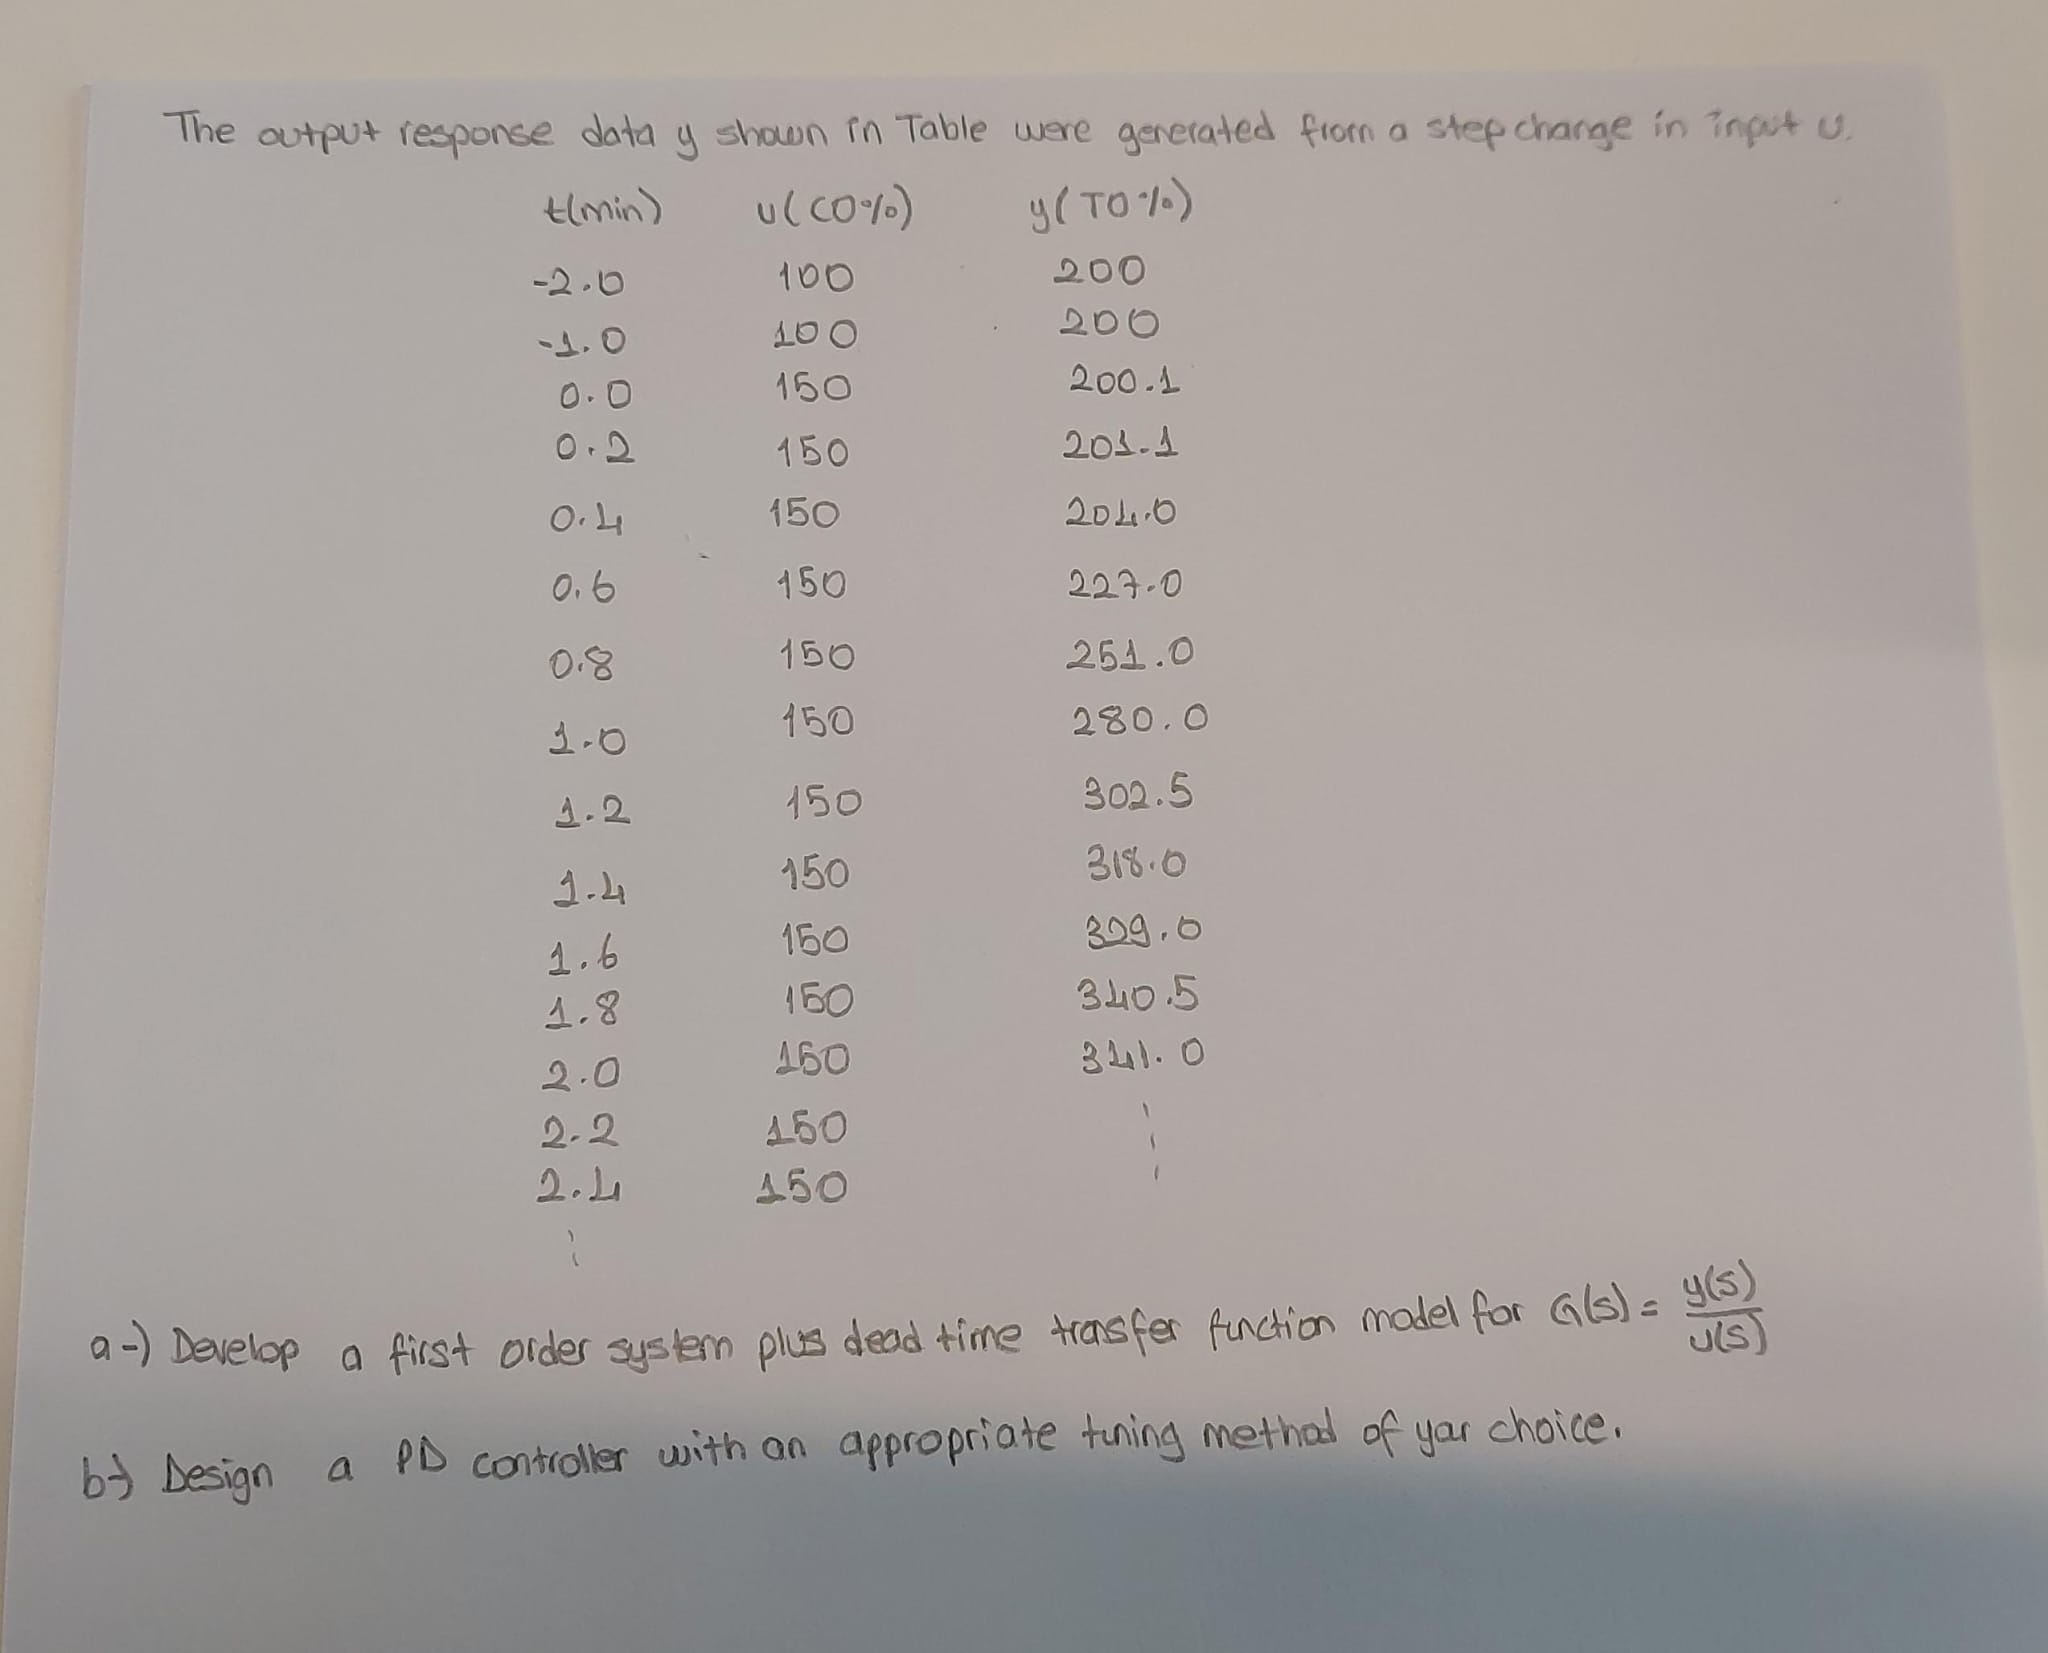 The output response data y shown in Table were generated from a step change in input u.
t(min) u(CO%) y(TO%)
-2.0 100 200
-1.0 100 200
0.0 150 200.1
0.2 150 201.1
0.4 150 204.0
0.6 150 227.0
0.8 150 251.0
1.0 150 280.0
1.2 150 302.5
1.4 150 318.0
1.6 150 329.0
1.8 150 340.5
2.0 150 341.0
2.2 150 ⋮
2.4 150
⋮
a-) Develop a first order system plus dead time transfer function model for G(s) = y(s)/u(s)
b-) Design a PD controller with an appropriate tuning method of your choice.